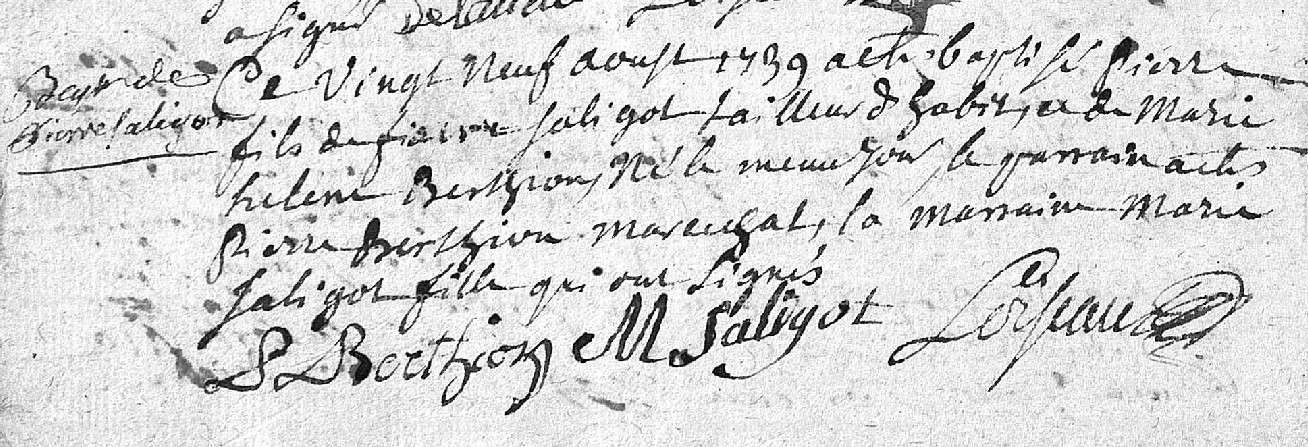 a signé
Bapt de
Pierre Saligot
Ce Vingt Neuf aoust 1739 a eté baptisé Pierre
fils de pierre Saligot tailleur d habits, et de Marie
helene Berthion, Né le meme jour, le parrain a eté
Pierre Berthion marechal, la marraine Marie
Saligot fille qui ont signés
P Berthion M Saligot Loiseau